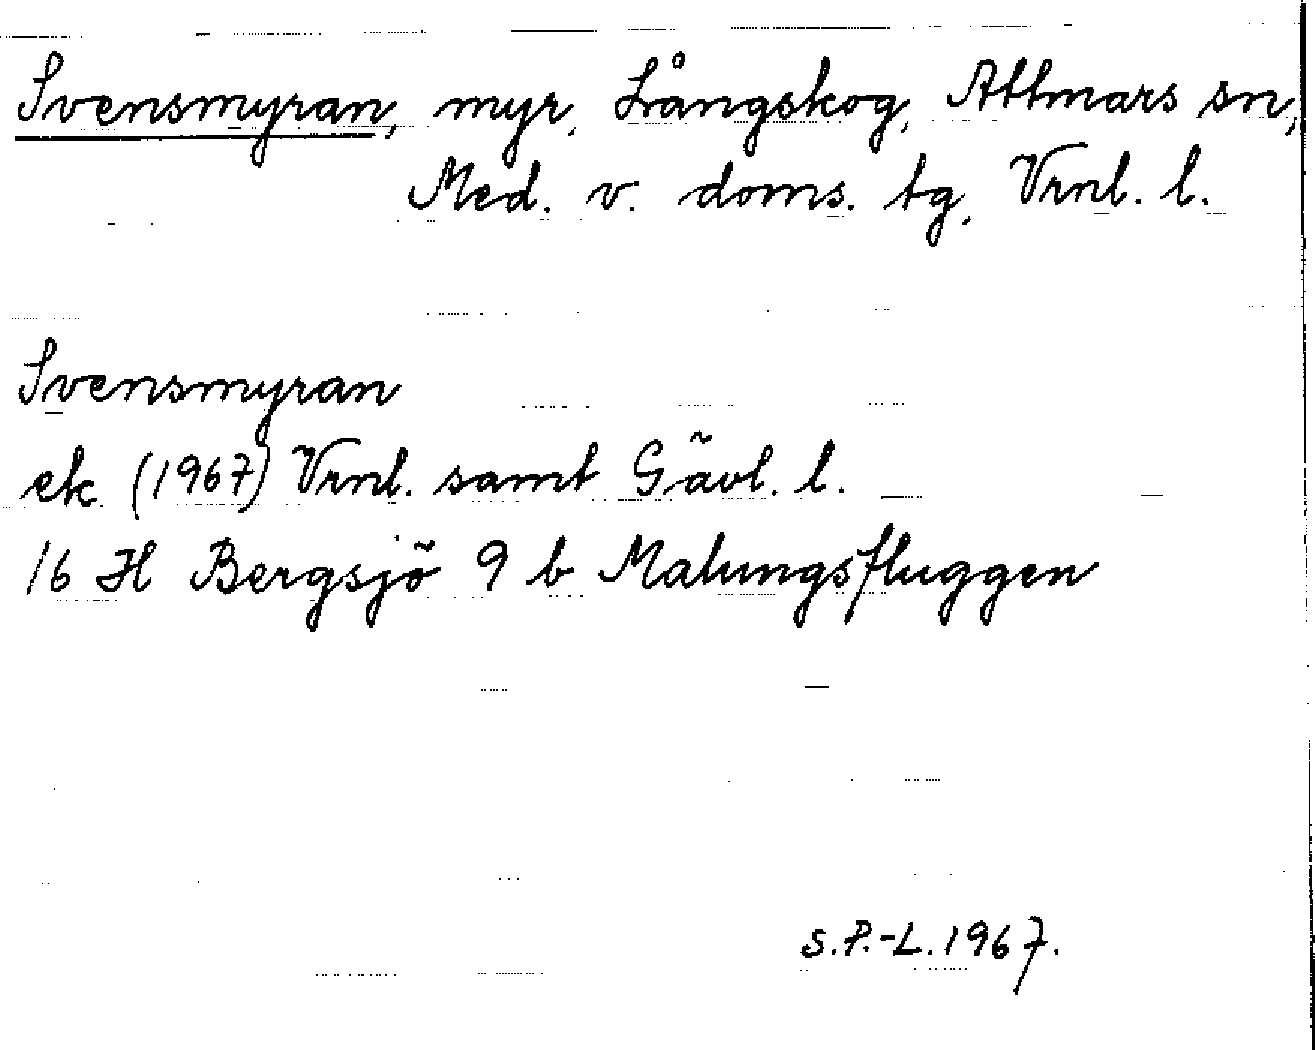 Svensmyran, myr, Långskog, Attmars sn,
Med. v. doms. tg, Vrnl. l.
Svensmyran
ek (1967) Vrnl. samt Gävl. l.
16 H Bergsjö 9 b Malungsfluggen
S.P.-L. 1967.